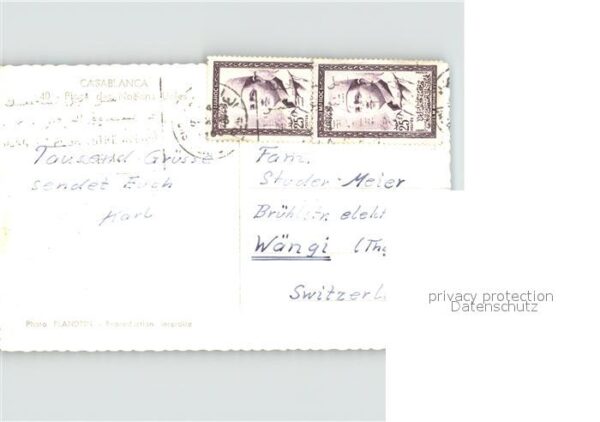 CASABLANCA
40 - Place des Nations Unies
Tausend Grüsse
sendet Euch
Karl
Fam.
Studer-Meier
Brühlstr. elekt
Wängi (Thg
Switzerl
Photo FLANDRIN - Reproduction interdite
25
25
privacy protection
Datenschutz